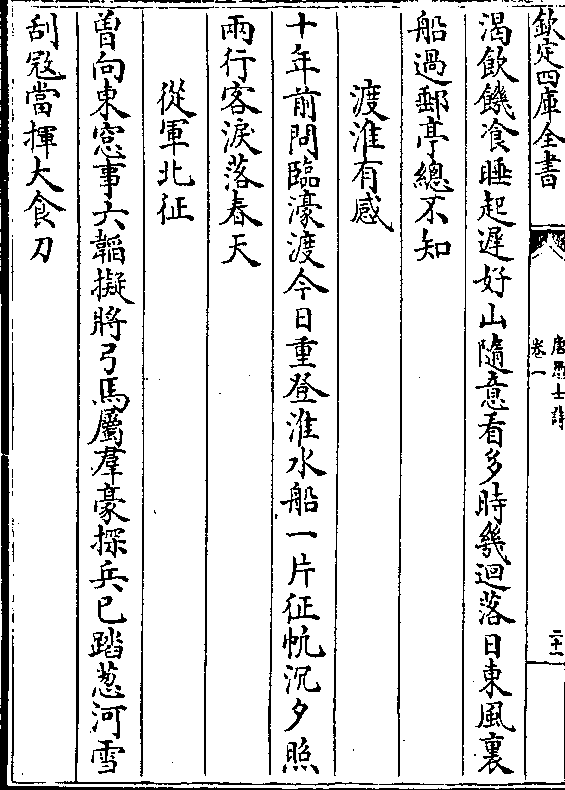 欽定四庫全書
唐愚士詩
卷一
二十一
渴飲饑飡睡起遲好山隨意看多時幾迴落日東風裏
船過郵亭總不知
渡淮有感
十年前問臨濠渡今日重登淮水船一片征帆沉夕照
兩行客淚落春天
從軍北征
曾向東窓事六韜擬將弓馬屬羣豪探兵已踏葱河雪
刮寇當揮大食刀